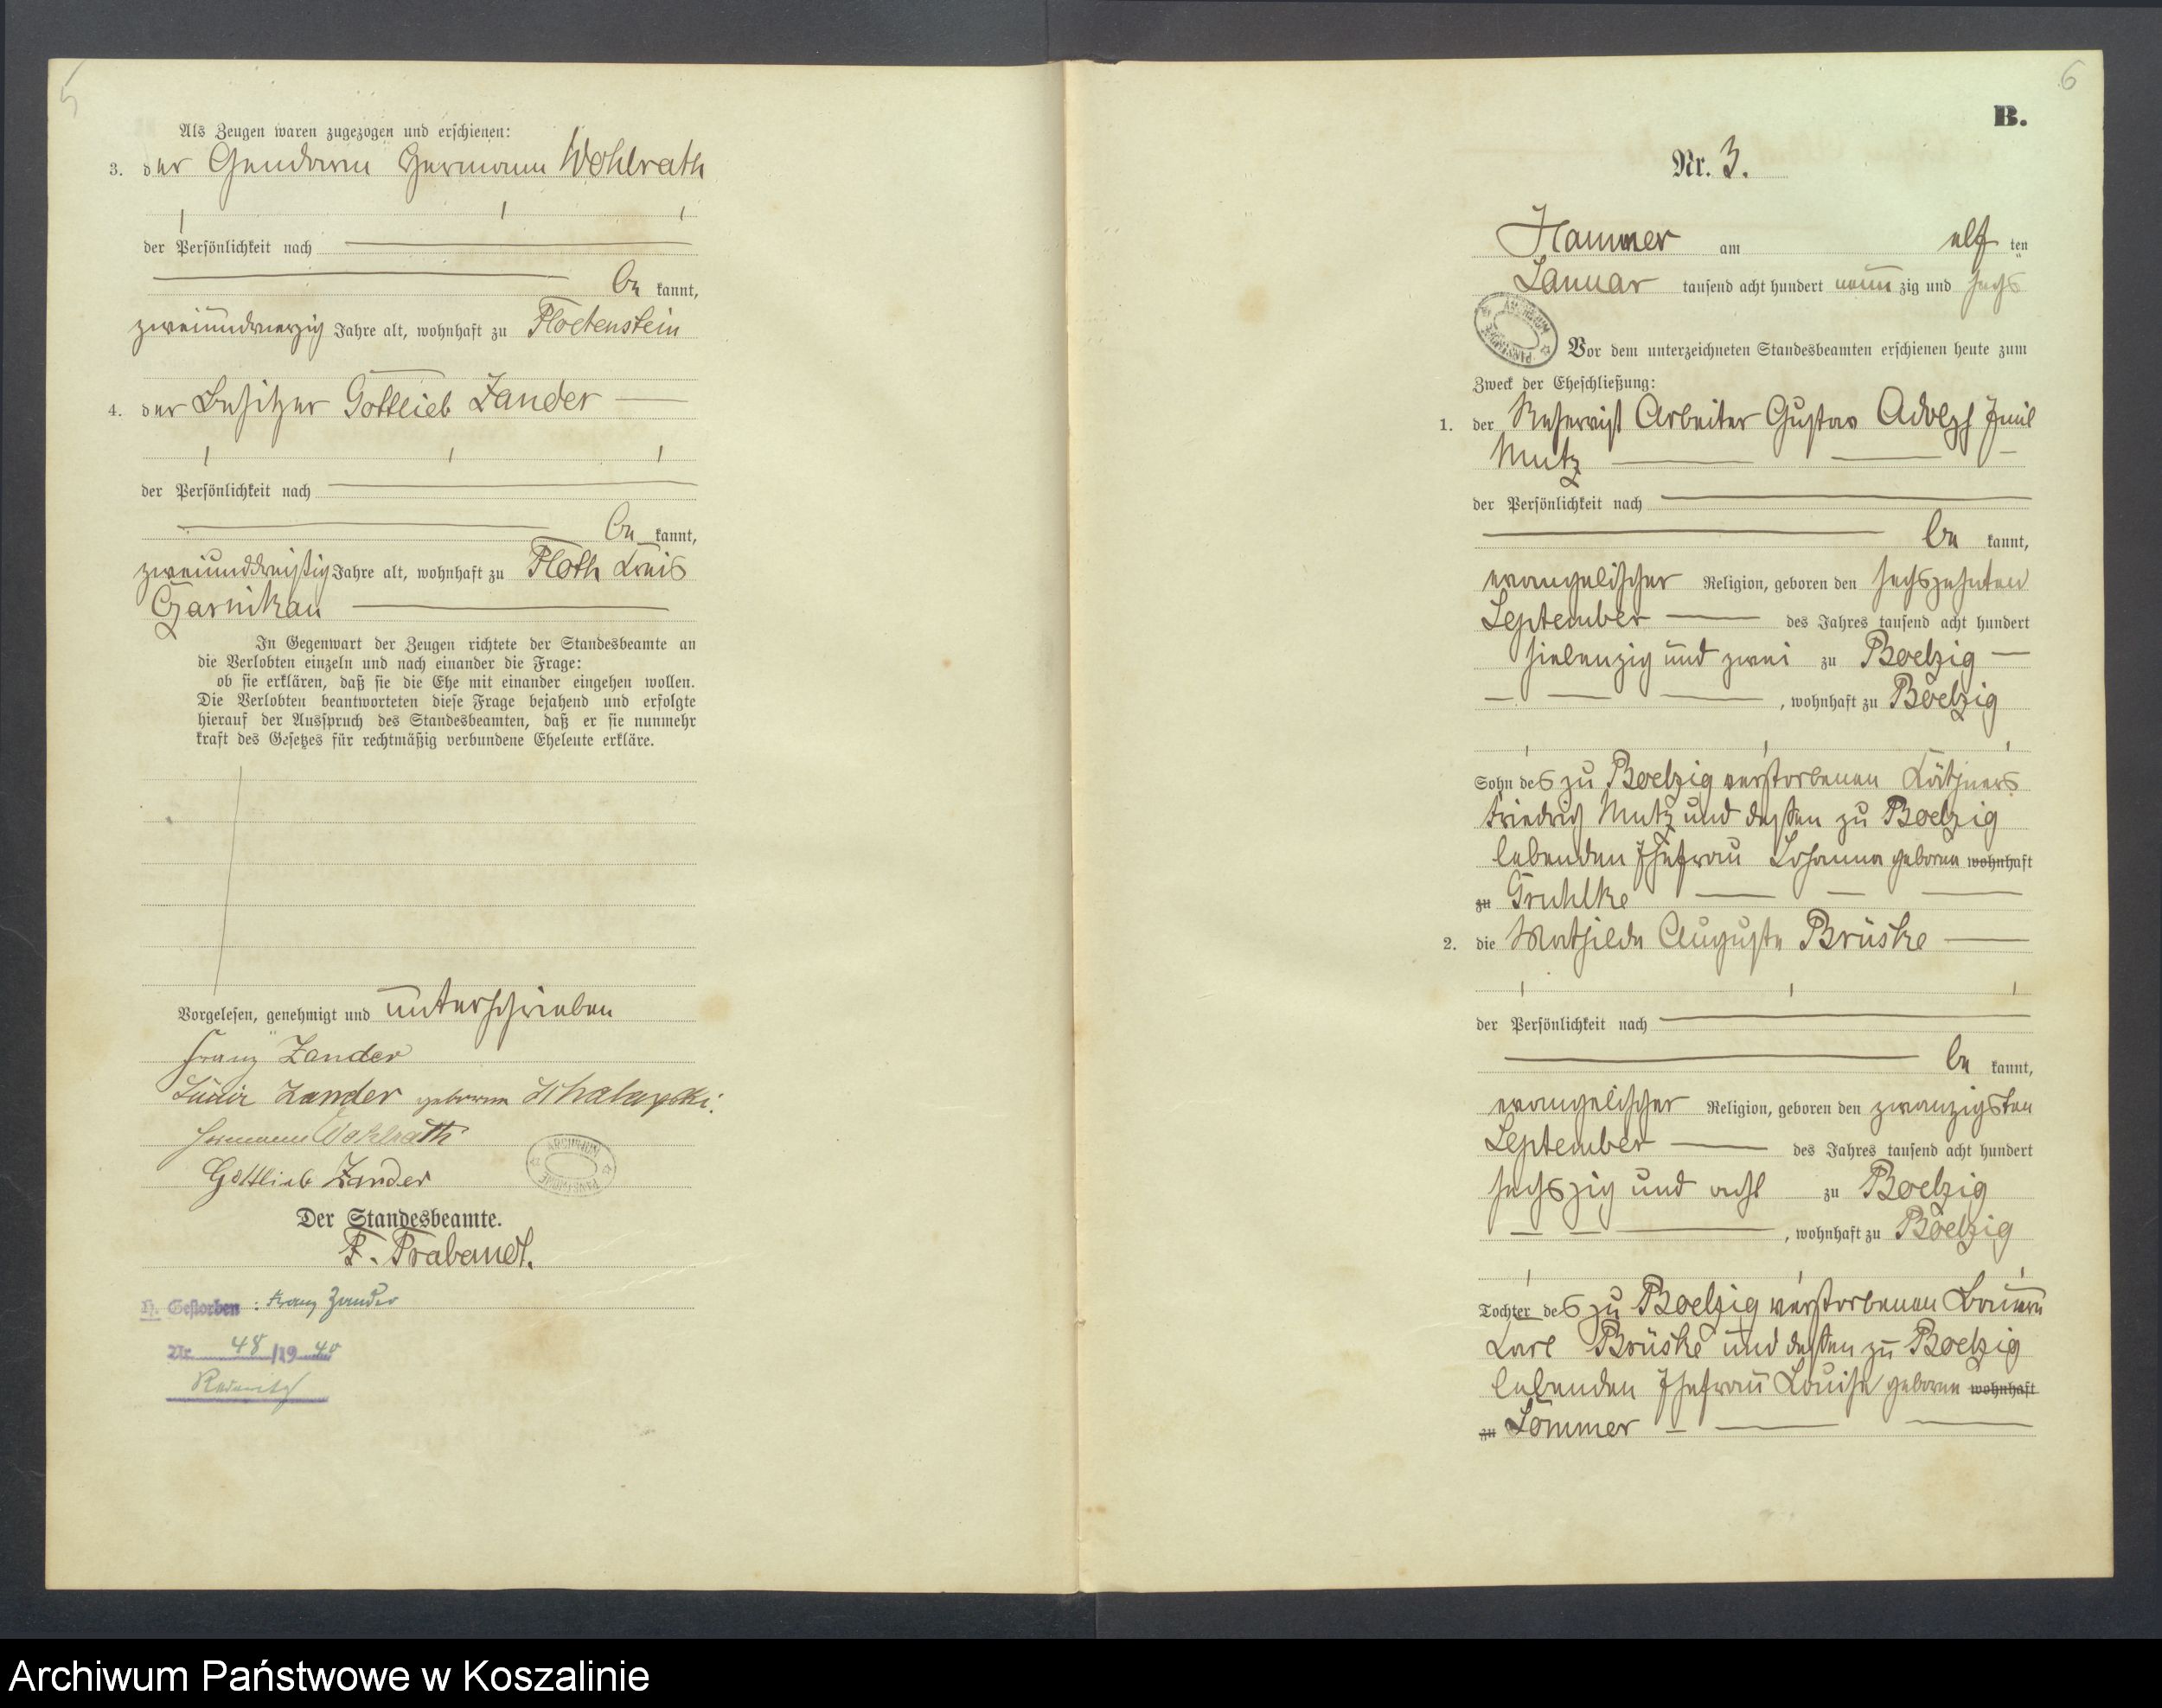 5
Als Zeugen waren zugezogen und erschienen:
3. der Gendarm Hermann Wohlrath
der Persönlichkeit nach
be kannt,
zweiundvierzig Jahre alt, wohnhaft zu Floetenstein
4. der Besitzer Gottlieb Zander
der Persönlichkeit nach
be kannt,
zweiunddreißig Jahre alt, wohnhaft zu Floth Kreis
Czarnikau
In Gegenwart der Zeugen richtete der Standesbeamte an
die Verlobten einzeln und nach einander die Frage:
ob sie erklären, daß sie die Ehe mit einander eingehen wollen.
Die Verlobten beantworteten diese Frage bejahend und erfolgte
hierauf der Ausspruch des Standesbeamten, daß er sie nunmehr
kraft des Gesetzes für rechtmäßig verbundene Eheleute erkläre.
Vorgelesen, genehmigt und unterschrieben
Franz Zander
Zander geborene
Hermann Wohlrath
Gottlieb Zander
ARCHIWUM PAŃSTWOWE
Der Standesbeamte.
F. Trabandt.
H. Gestorben: Franz Zander
Nr. 48/1940
6
B.
Nr. 3.
Hammer am elf ten
Januar tausend acht hundert neun zig und sechs
ARCHIWUM PAŃSTWOWE
Vor dem unterzeichneten Standesbeamten erschienen heute zum
Zweck der Eheschließung:
1. der Reservist Arbeiter Gustav Adolph Emil
Mutz
der Persönlichkeit nach
be kannt,
evangelischer Religion, geboren den sechszehnten
September des Jahres tausend acht hundert
siebenzig und zwei zu Boelzig
, wohnhaft zu Boelzig
Sohn des zu Boelzig verstorbenen Käthners
Friedrich Mutz und dessen zu Boelzig
lebenden Ehefrau Johanna geborene wohnhaft
zu Gruhlke
2. die Mathilde Auguste Brüske
der Persönlichkeit nach
be kannt,
evangelischer Religion, geboren den zwanzigsten
September des Jahres tausend acht hundert
sechszig und acht zu Boelzig
, wohnhaft zu Boelzig
Tochter des zu Boelzig verstorbenen Bauern
Karl Brüske und dessen zu Boelzig
lebenden Ehefrau Louise geborene wohnhaft
zu Sommer
Archiwum Państwowe w Koszalinie